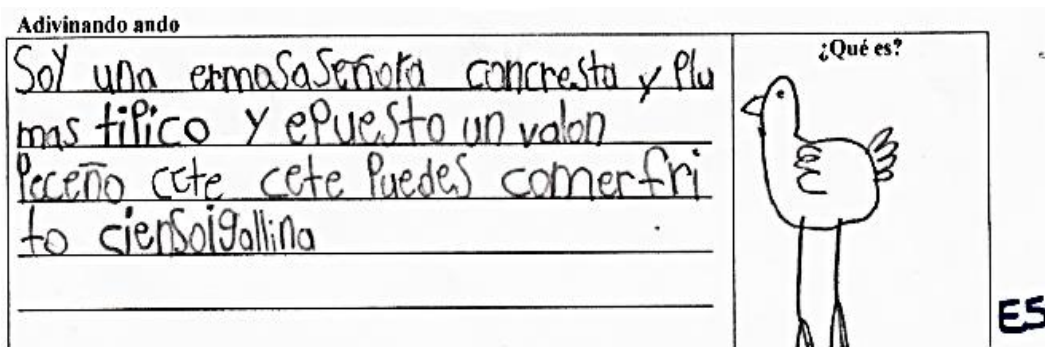 Adivinando ando
¿Qué es?
Soy una ermasaseñora concresta y Plu
mas tiPico y ePuesto un valon
Peceño cete cete Puedes comerfri
to ciensoigallina
ES